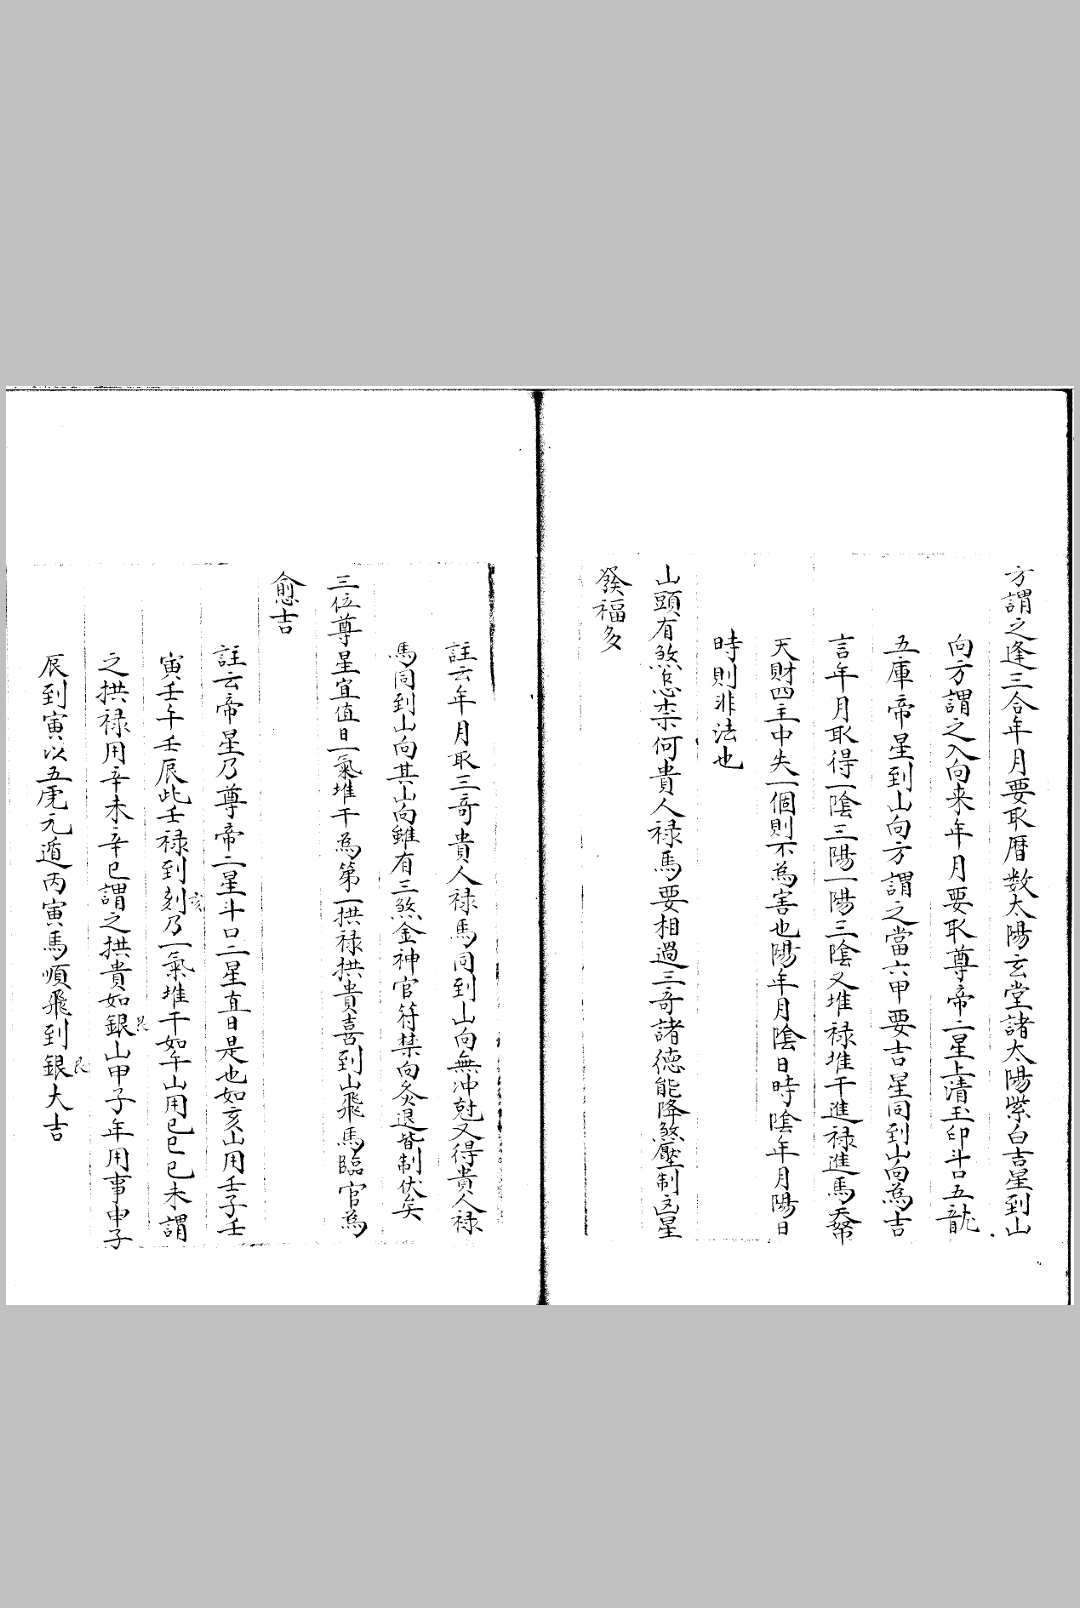 方謂之逢三合年月要取暦数太陽玄堂諸太陽紫白吉星到山
向方謂之入向来年月要取尊帝二星上清玉印斗口五龍
五庫帝星到山向方謂之當六甲要吉星同到山向為吉
言年月取得一陰三陽一陽三陰又堆禄堆干進禄進馬天帑
天財四主中失一個則不為害也陽年月陰日時陰年月陽日
時則非法也
山頭有煞怎柰何貴人禄馬要相過三奇諸德能降煞壓制凶星
發福多
註云年月取三奇貴人禄馬同到山向無冲尅又得貴人禄
馬同到山向其山向雖有三煞金神官符禁向灸退皆制伏矣
三位尊星宜值日一氣堆干為第一拱禄拱貴喜到山飛馬臨官為
愈吉
註云帝星乃尊帝二星斗口二星直日是也如亥山用壬子壬
寅壬午壬辰此壬禄到刻亥乃一氣堆干如午山用己巳己未謂
之拱禄用辛未辛巳謂之拱貴如銀艮山甲子年用事申子
辰到寅以五虎元遁丙寅馬順飛到銀艮大吉